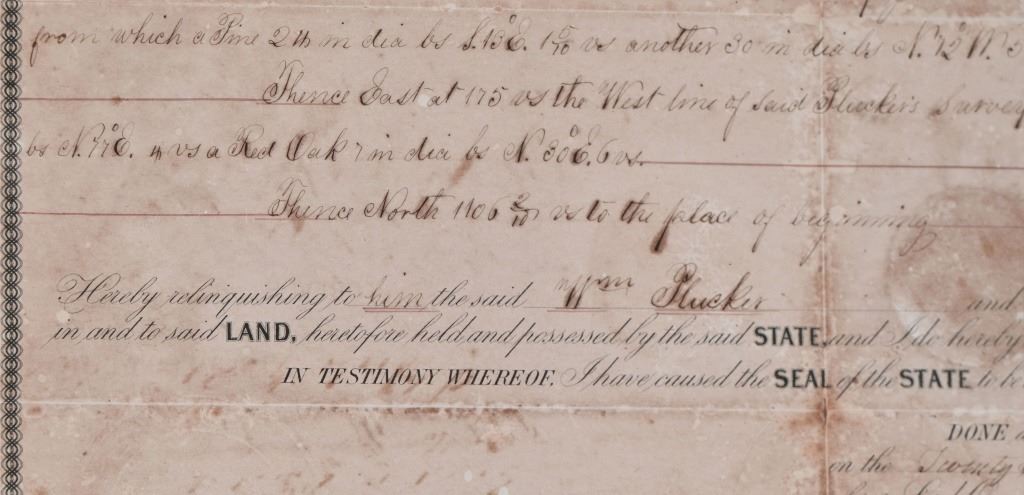 from which a Pine 24 in dia bs S. 13° E. 1 5/10 vs another 30 in dia bs N. 72° W. 5
Thence East at 175 vs the West line of said Plucker's Survey
bs N. 77° E. 4 vs a Red Oak 7 in dia bs N. 30° E. 6 vs.
Thence North 1106 2/10 vs to the palace of beginning
Hereby relinquishing to him the said Wm Plucker and
in and to said LAND, heretofore held and possessed by the said STATE, and I do hereby
IN TESTIMONY WHEREOF. I have caused the SEAL of the STATE to be
DONE
on the Twenty